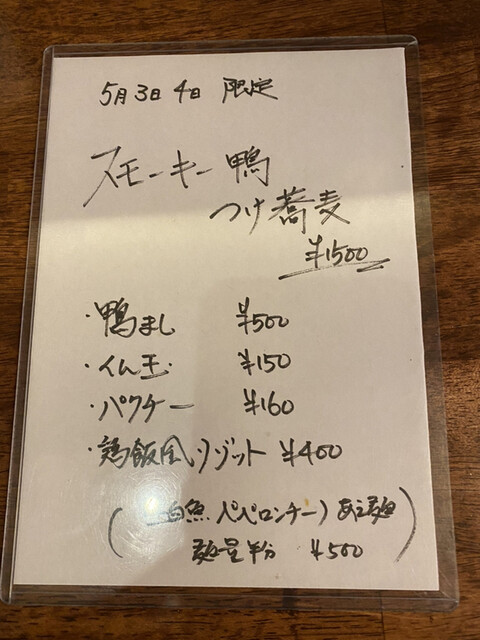 5月3日4日 限定
スモーキー鴨
つけ蕎麦
¥1500
・鴨まし ¥500
・イム玉 ¥150
・パクチー ¥160
・鶏飯風リゾット ¥400
(白魚ペペロンチーノあえ麺
麺量半分 ¥500)